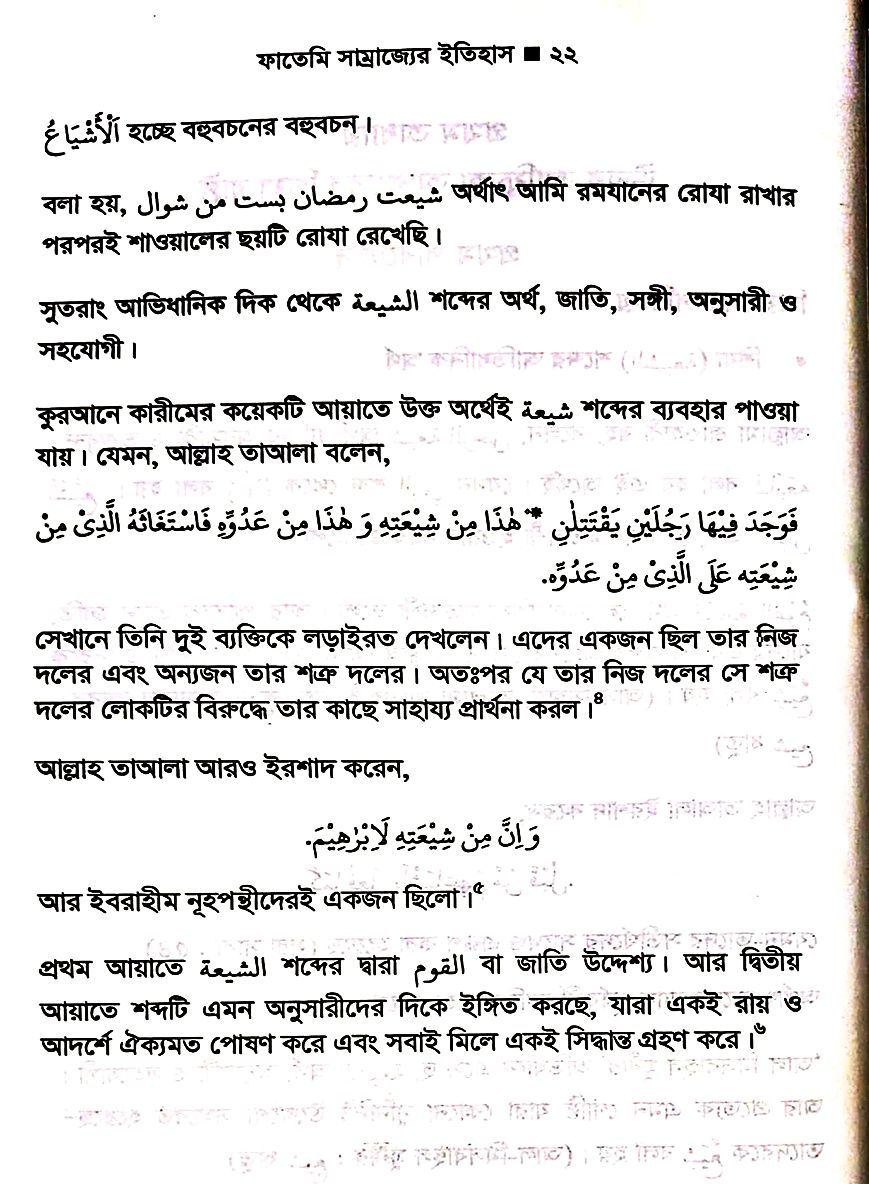 ফাতেমি সাম্রাজ্যের ইতিহাস ■ ২২
اَلْأَشْيَاعُ হচ্ছে বহুবচনের বহুবচন।
বলা হয়, شيعت رمضان بست من شوال অর্থাৎ আমি রমযানের রোযা রাখার
পরপরই শাওয়ালের ছয়টি রোযা রেখেছি।
সুতরাং আভিধানিক দিক থেকে الشيعة শব্দের অর্থ, জাতি, সঙ্গী, অনুসারী ও
সহযোগী।
কুরআনে কারীমের কয়েকটি আয়াতে উক্ত অর্থেই شيعة শব্দের ব্যবহার পাওয়া
যায়। যেমন, আল্লাহ তাআলা বলেন,
فَوَجَدَ فِيْهَا رَجُلَيْنِ يَقْتَتِلٰنِ ۫* هٰذَا مِنْ شِيْعَتِهٖ وَ هٰذَا مِنْ عَدُوِّهٖ فَاسْتَغَاثَهُ الَّذِىْ مِنْ
شِيْعَتِه عَلَى الَّذِىْ مِنْ عَدُوِّه.
সেখানে তিনি দুই ব্যক্তিকে লড়াইরত দেখলেন। এদের একজন ছিল তার নিজ
দলের এবং অন্যজন তার শত্রু দলের। অতঃপর যে তার নিজ দলের সে শত্রু
দলের লোকটির বিরুদ্ধে তার কাছে সাহায্য প্রার্থনা করল।⁸
আল্লাহ তাআলা আরও ইরশাদ করেন,
وَ اِنَّ مِنْ شِيْعَتِهٖ لَاِبْرٰهِيْمَ.
আর ইবরাহীম নূহপন্থীদেরই একজন ছিলো।৫
প্রথম আয়াতে الشيعة শব্দের দ্বারা القوم বা জাতি উদ্দেশ্য। আর দ্বিতীয়
আয়াতে শব্দটি এমন অনুসারীদের দিকে ইঙ্গিত করছে, যারা একই রায় ও
আদর্শে ঐক্যমত পোষণ করে এবং সবাই মিলে একই সিদ্ধান্ত গ্রহণ করে।৬